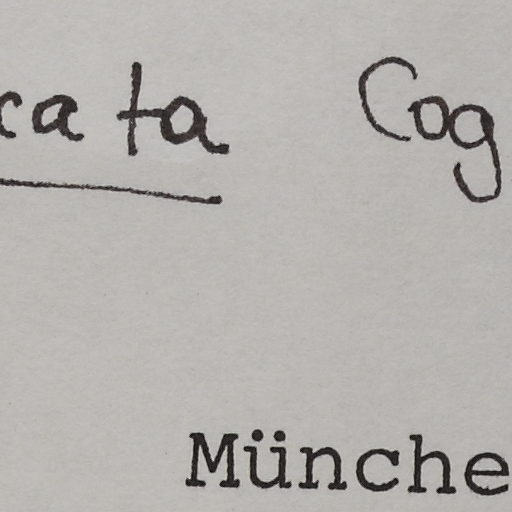 cata Cog
Münche